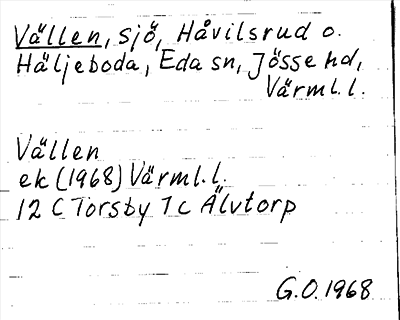 Vällen, sjö, Håvilsrud o.
Häljeboda, Eda sn, Jösse hd,
Värml. l.
Vällen
ek (1968) Värml. l.
12 C Torsby 7 c Älvtorp
G.O. 1968